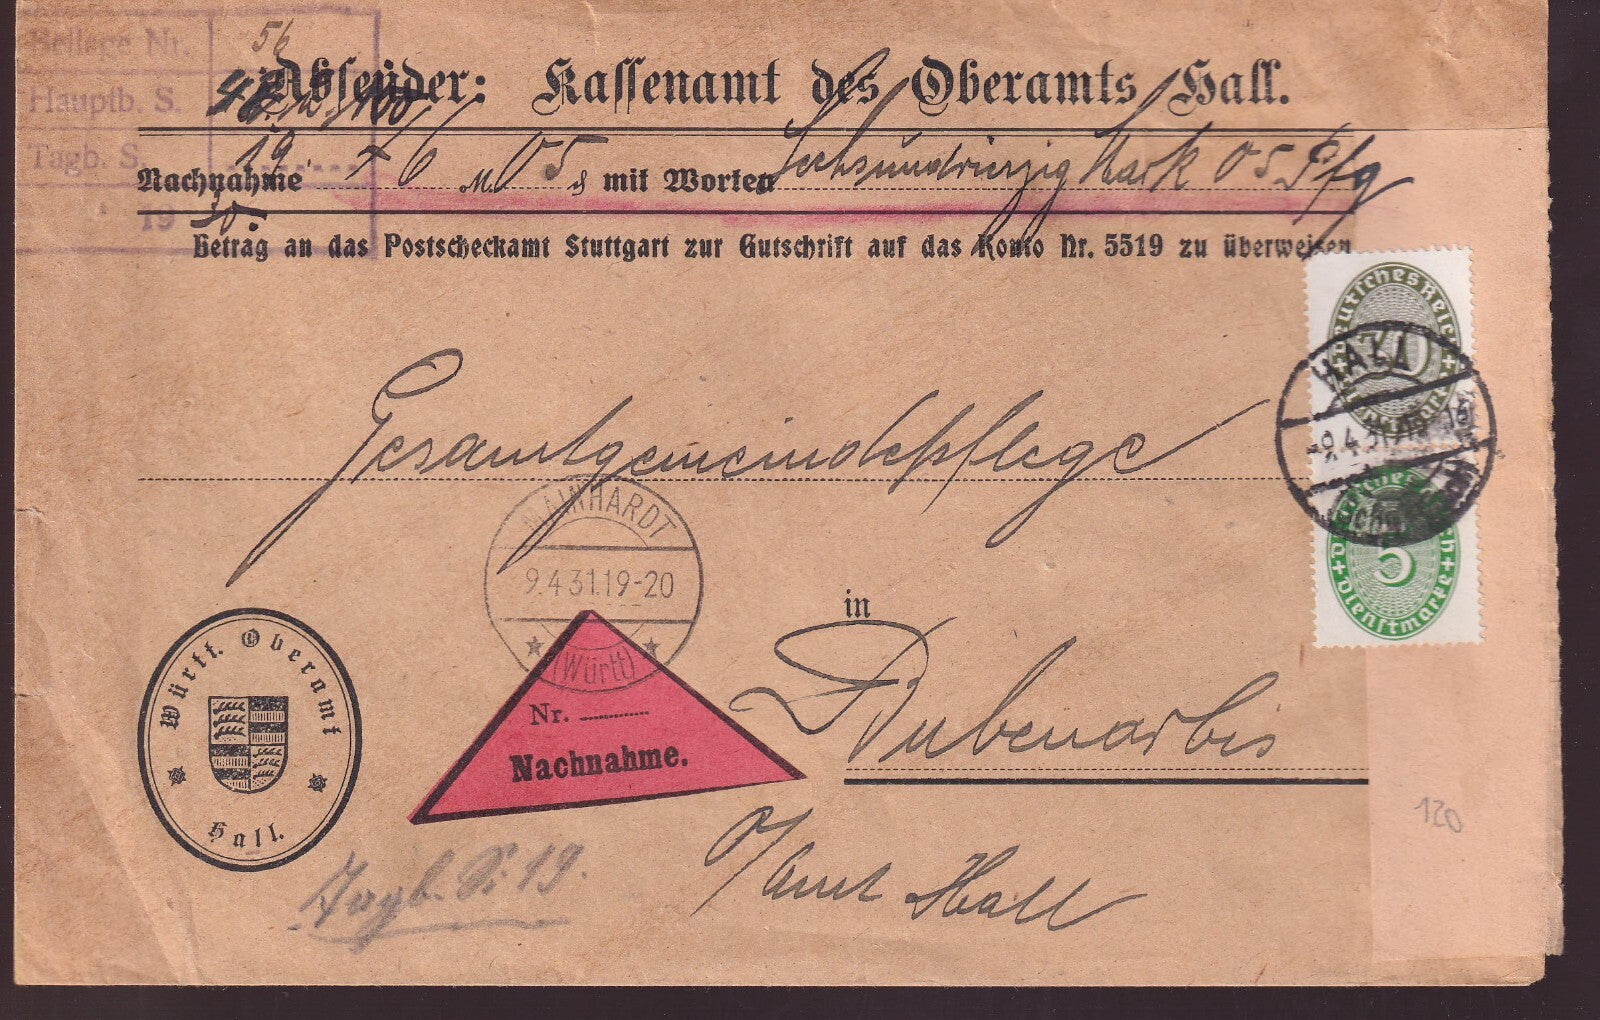 Beilage Nr. 56
Hauptb. S.
Tagb. S. 19.
19 30.
Absender: Kassenamt des Oberamts Hall.
Nachnahme 46 M. 05 ₰ mit Worten Sechsundvierzig Mark 05 Pfg
Betrag an das Postscheckamt Stuttgart zur Gutschrift auf das Konto Nr. 5519 zu überweisen
Deutsches Reich
Dienstmarke
HALL
-9.4.31
Deutsches Reich
5
Dienstmarke
Gesamtgemeindepflege
MAINHARDT
9.4.31.19-20
(Württ)
in
Württ. Oberamt
Hall.
Nr.
Nachnahme.
O/Amt Hall
Tagb. S. 19.
120